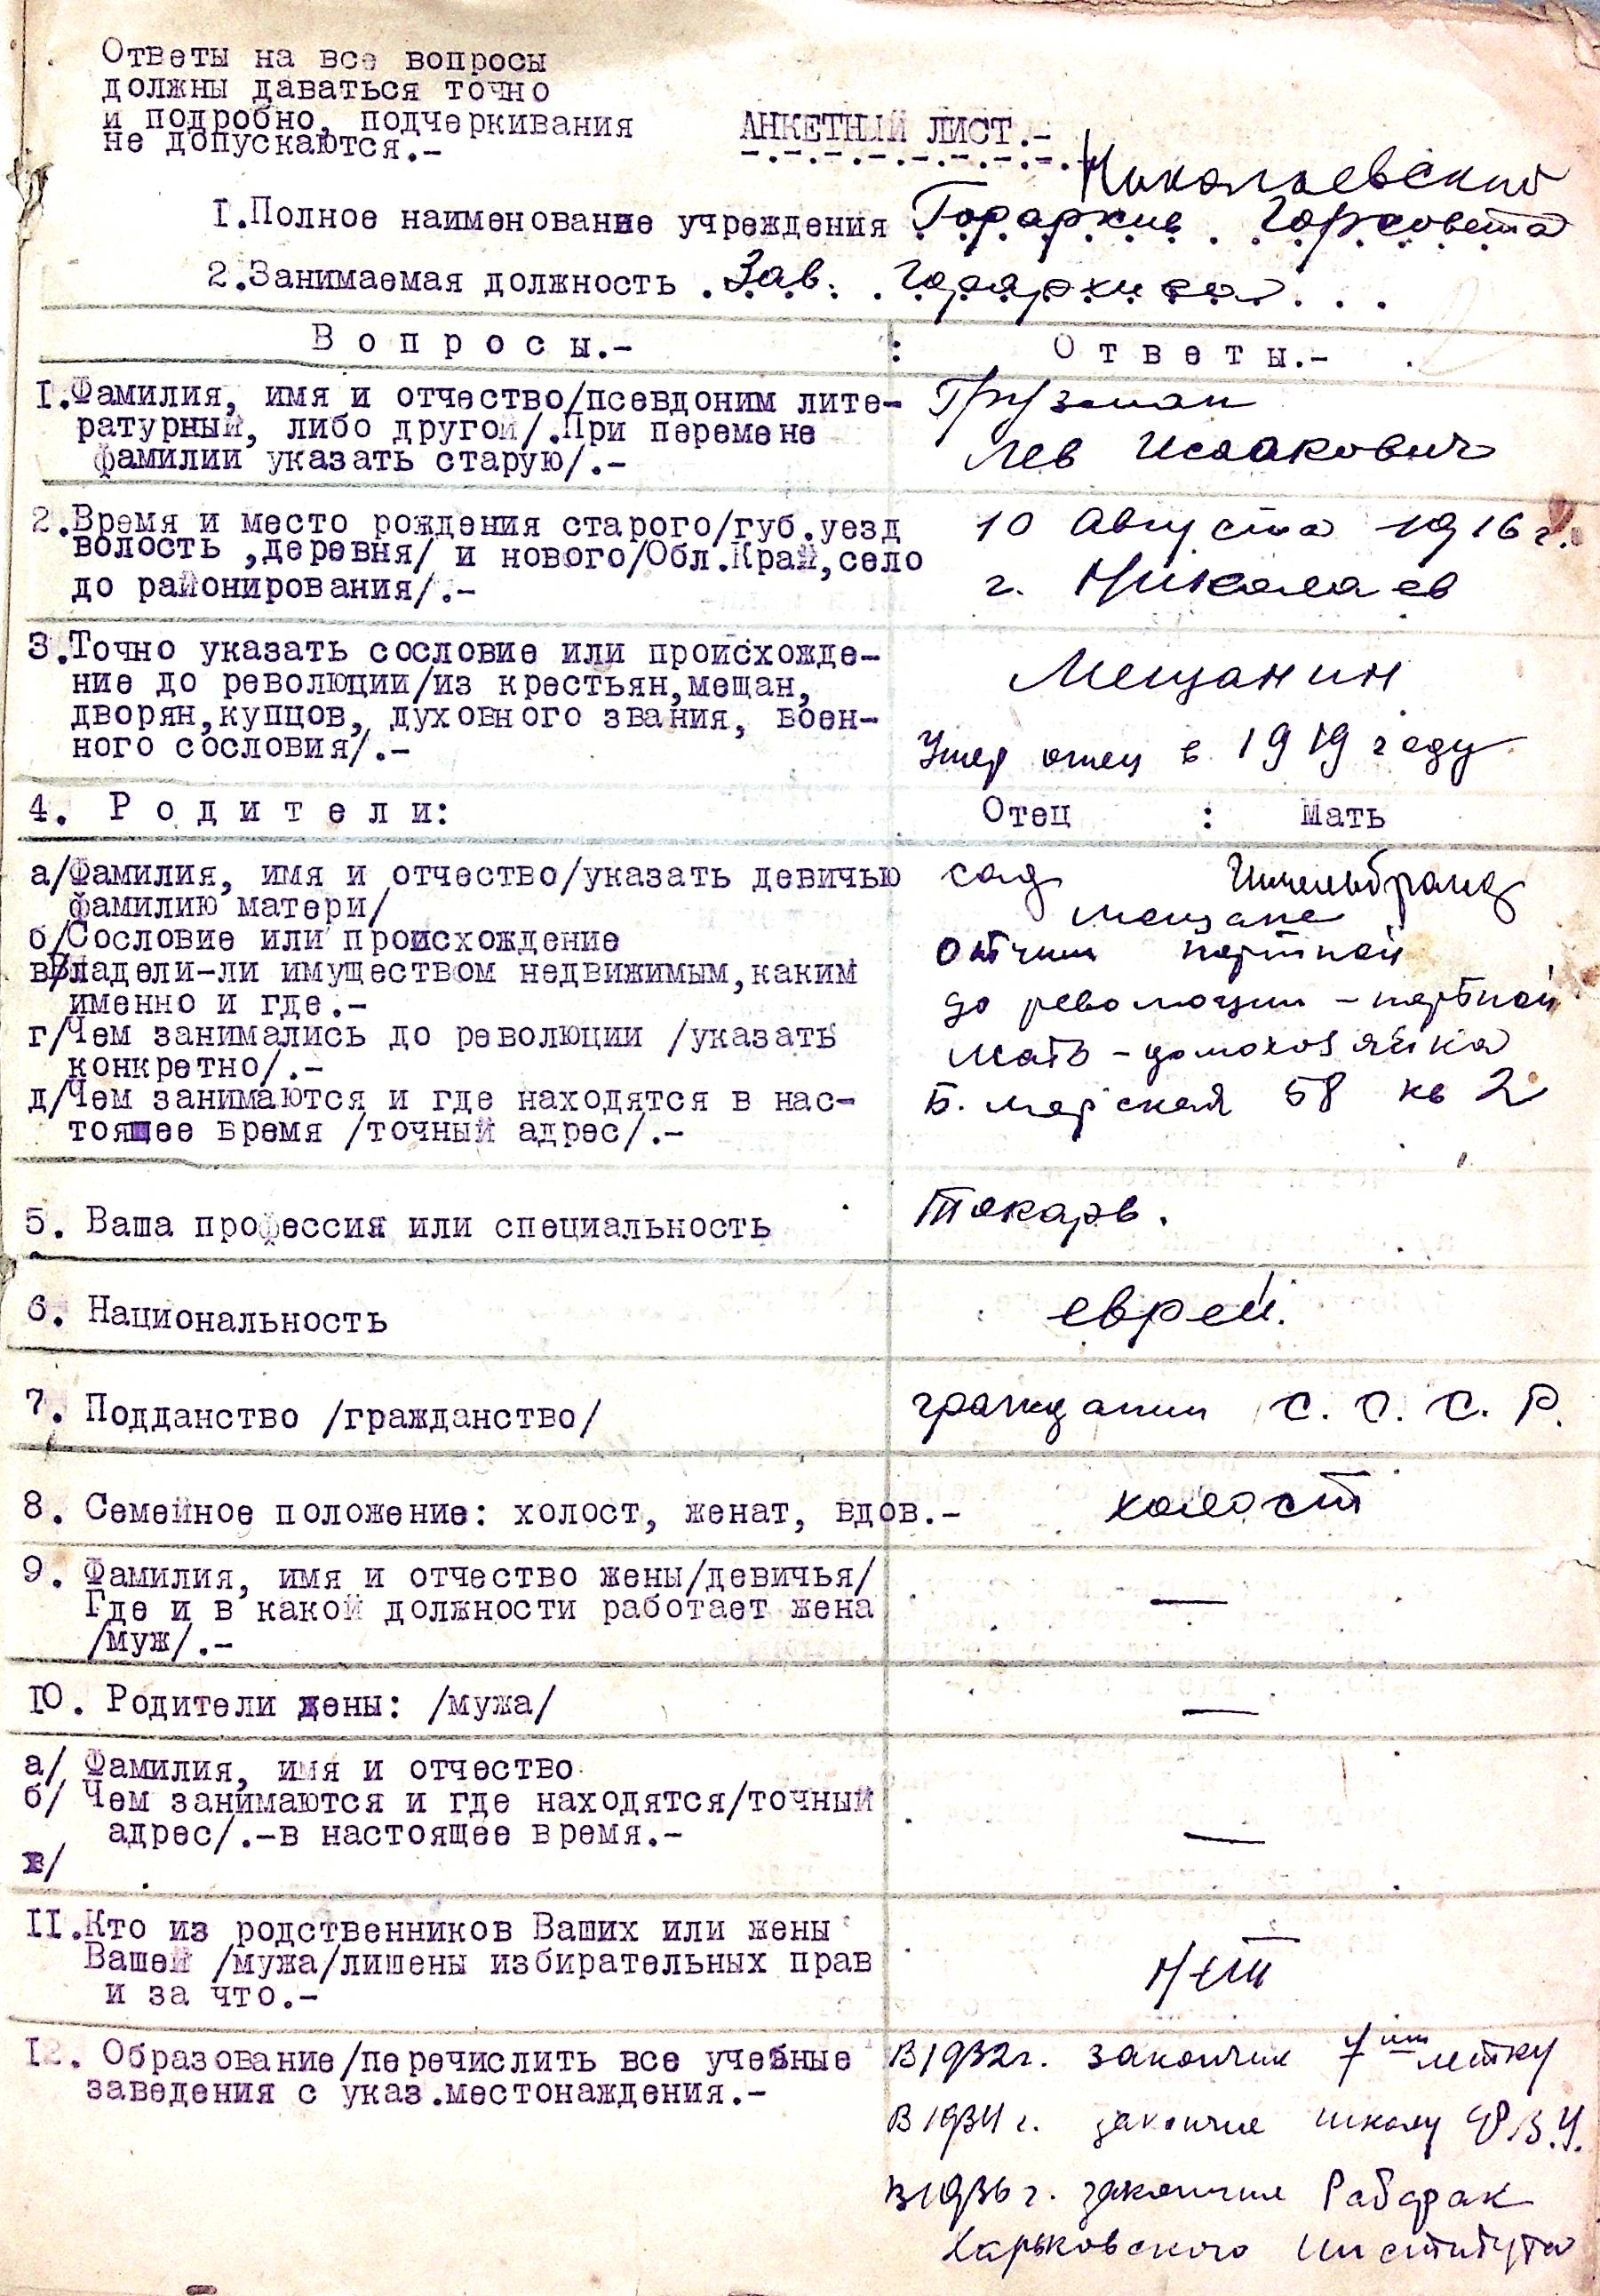 Ответы на все вопросы
должны даваться точно
и подробно, подчеркивания
не допускаются.-
АНКЕТНЫЙ ЛИСТ.-
Николаевский
I.Полное наименование учреждения Горархив Горсовета
2.Занимаемая должность Зав. Горархива
Вопросы.- : Ответы.-
I.Фамилия, имя и отчество/псевдоним лите-
ратурный, либо другой/.При перемене
фамилии указать старую/.-
Грузман
Лев Исаакович
2.Время и место рождения старого/губ.уезд
волость ,деревня/ и нового/Обл.Край,село
до районирования/.-
10 Августа 1916 г.
г. Николаев
3.Точно указать сословие или происхожде-
ние до революции/из крестьян,мещан,
дворян,купцов, духовного звания, воен-
ного сословия/.-
Мещанин
Умер отец в 1919 году
4. Родители: Отец : Мать
а/Фамилия, имя и отчество/указать девичью
фамилию матери/
б/Сословие или происхождение
в/Владели-ли имуществом недвижимым,каким
именно и где.-
г/Чем занимались до революции /указать
конкретно/.-
д/Чем занимаются и где находятся в нас-
тоящее время /точный адрес/.-
мещане
отчим портной
до революции - портной
мать - домохозяйка
Б. Морская 58 кв 2
5. Ваша профессия или специальность
Токарь.
6. Национальность
еврей.
7. Подданство /гражданство/
гражданин С. С. С. Р.
8. Семейное положение: холост, женат, вдов.-
холост
9. Фамилия, имя и отчество жены/девичья/
Где и в какой должности работает жена
/муж/.-
—
10. Родители жены: /мужа/
—
а/ Фамилия, имя и отчество
б/ Чем занимаются и где находятся/точный
адрес/.-в настоящее время.-
в/
—
II.Кто из родственников Ваших или жены
Вашей /мужа/лишены избирательных прав
и за что.-
нет
I2. Образование/перечислить все учебные
заведения с указ.местонаждения.-
В 1932г. закончил 7ми летку
В 1934 г. закончил школу Ф.З.У.
В 1936 г. закончил Рабфак
Харьковского института